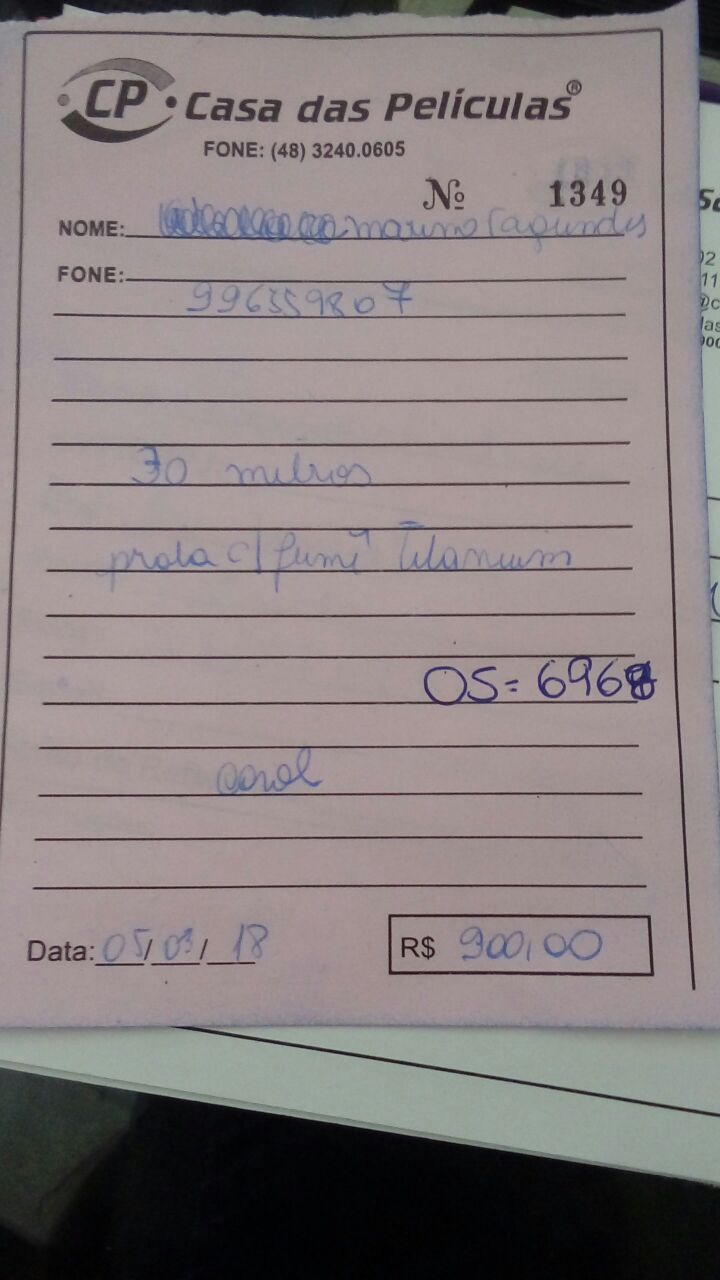 CP Casa das Películas®
FONE: (48) 3240.0605
Nº 1349
NOME: marino fagundes
FONE:
996359807
30 metros
prata c/ fumê Titanium
OS= 6968
carol
Data: 05/03/18 R$ 900,00